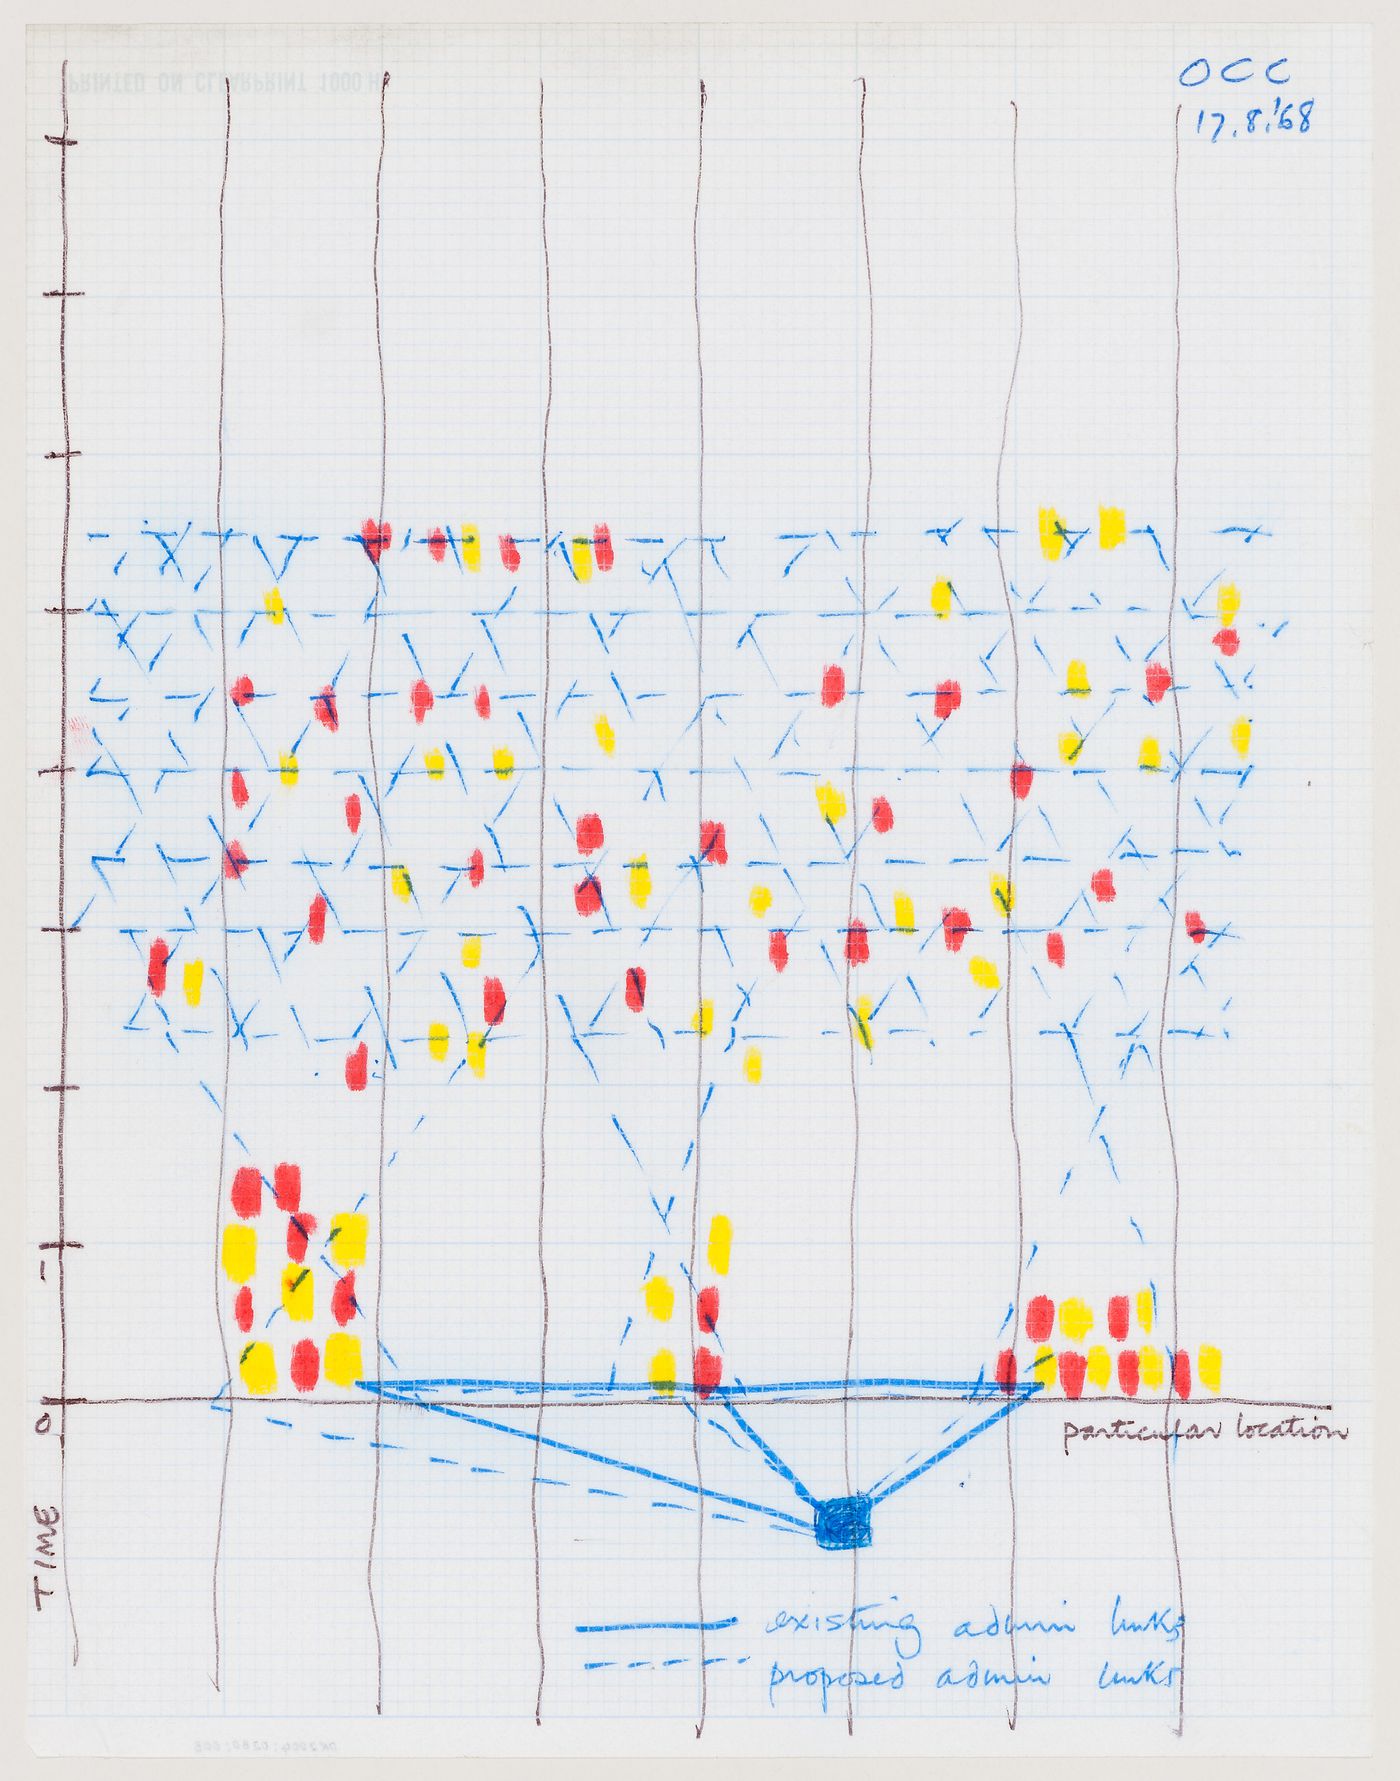 PRINTED ON CLEARPRINT 1000 H
OCC
17.8.'68
1
0
particular location
TIME
existing admin links
proposed admin links
DR2004:0280:008